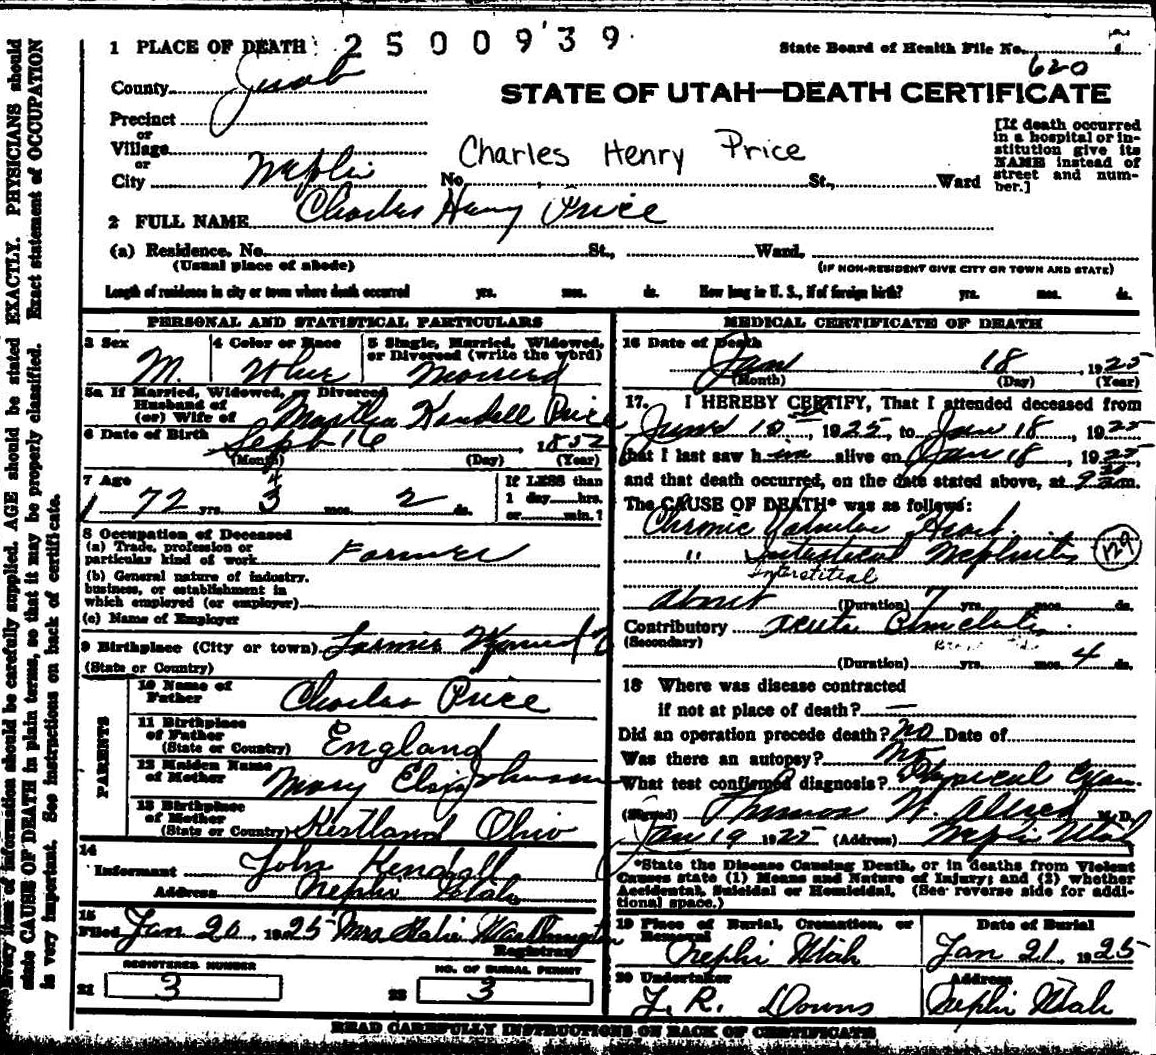 1 PLACE OF DEATH: 2500939 State Board of Health File No.
620
County Juab
STATE OF UTAH—DEATH CERTIFICATE
Precinct
or
Village
or
City Nephi No. St., Ward
Charles Henry Price
[If death occurred in a hospital or institution give its NAME instead of street and number.]
2 FULL NAME Charles Henry Price
(a) Residence. No. St., Ward,
(Usual place of abode) (IF NON-RESIDENT GIVE CITY OR TOWN AND STATE)
Length of residence in city or town where death occurred yrs. mos. ds. How long in U. S., if of foreign birth? yrs. mos. ds.
PERSONAL AND STATISTICAL PARTICULARS
3 Sex M.
4 Color or Race White
5 Single, Married, Widowed, or Divorced (write the word) Married
5a If Married, Widowed, or Divorced
Husband of
(or) Wife of Martha Kendall Price
6 Date of Birth Sept 16, 1852
(Month) (Day) (Year)
7 Age 72 yrs. 3 4 mos. 2 ds.
If LESS than
1 day hrs.
or min.?
8 Occupation of Deceased
(a) Trade, profession or
particular kind of work Farmer
(b) General nature of industry,
business, or establishment in
which employed (or employer)
(c) Name of Employer
9 Birthplace (City or town)
(State or Country)
PARENTS
10 Name of
Father Charles Price
11 Birthplace
of Father
(State or Country) England
12 Maiden Name
of Mother Mary Johnson
13 Birthplace
of Mother
(State or Country) Kirtland Ohio
14
Informant John Kendall
Address Nephi Utah
15
Filed Jan 20, 1925 Mrs
Registrar
REGISTERED NUMBER
21 3
NO. OF BURIAL PERMIT
22 3
MEDICAL CERTIFICATE OF DEATH
16 Date of Death Jan 18, 1925
(Month) (Day) (Year)
17. I HEREBY CERTIFY, That I attended deceased from
10, 1925, to Jan 18, 1925
that I last saw him alive on Jan 18, 1925
and that death occurred, on the date stated above, at 9 am.
The CAUSE OF DEATH* was as follows:
Chronic Valvular Heart
" Interstitial Nephritis 129
Interstitial
About (Duration) 7 yrs. mos. ds.
Contributory acute
(Secondary)
(Duration) yrs. mos. 4 ds.
18 Where was disease contracted
if not at place of death? —
Did an operation precede death? no Date of
Was there an autopsy? no
What test confirmed diagnosis? Physical Exam
(Signed) M. D.
Jan 19 1925 (Address) Nephi Utah
*State the Disease Causing Death, or in deaths from Violent
Causes state (1) Means and Nature of Injury; and (2) whether
Accidental, Suicidal or Homicidal. (See reverse side for addi-
tional space.)
19 Place of Burial, Cremation, or
Removal Nephi Utah
Date of Burial
Jan 21 1925
20 Undertaker
J. R. Downs
Address
Nephi Utah
READ CAREFULLY INSTRUCTIONS ON BACK OF CERTIFICATE
Every item of information should be carefully supplied. AGE should be stated EXACTLY. PHYSICIANS should
state CAUSE OF DEATH in plain terms, so that it may be properly classified. Exact statement of OCCUPATION
is very important. See instructions on back of certificate.